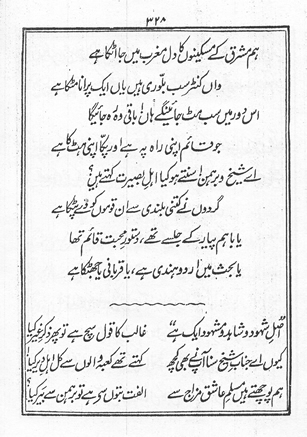 ۳۲۸
ہم مشرق کے مسکینوں کا دل مغرب میں جا اٹکا ہے
واں کنٹر سب بلّوری ہیں یاں ایک پرانا مٹکا ہے
اس دور میں سب مٹ جائینگے ہاں! باقی وہ رہ جائیگا
جو قائم اپنی راہ پہ ہے اور پکا اپنی ہٹ کا ہے
اے شیخ و برہمن، سنتے ہو کیا اہل بصیرت کہتے ہیں؟
گردوں نے کتنی بلندی سے ان قوموں کو دے پٹکا ہے
یا باہم پیار کے جلسے تھے، دستور محبت قائم تھا
یا بحث میں اردو ہندی ہے، یا قربانی یا جھٹکا ہے
"اصل شہود و شاہد و مشہود ایک ہے" غالب کا قول سچ ہے تو پھر ذکر غیر کیا
کیوں اے جناب شیخ سنا آپ نے بھی کچھ کہتے تھے کعبہ والوں سے کل اہل دیر کیا!
ہم پوچھتے ہیں مسلم عاشق مزاج سے الفت بتوں سے ہے تو برہمن سے بیر کیا؟